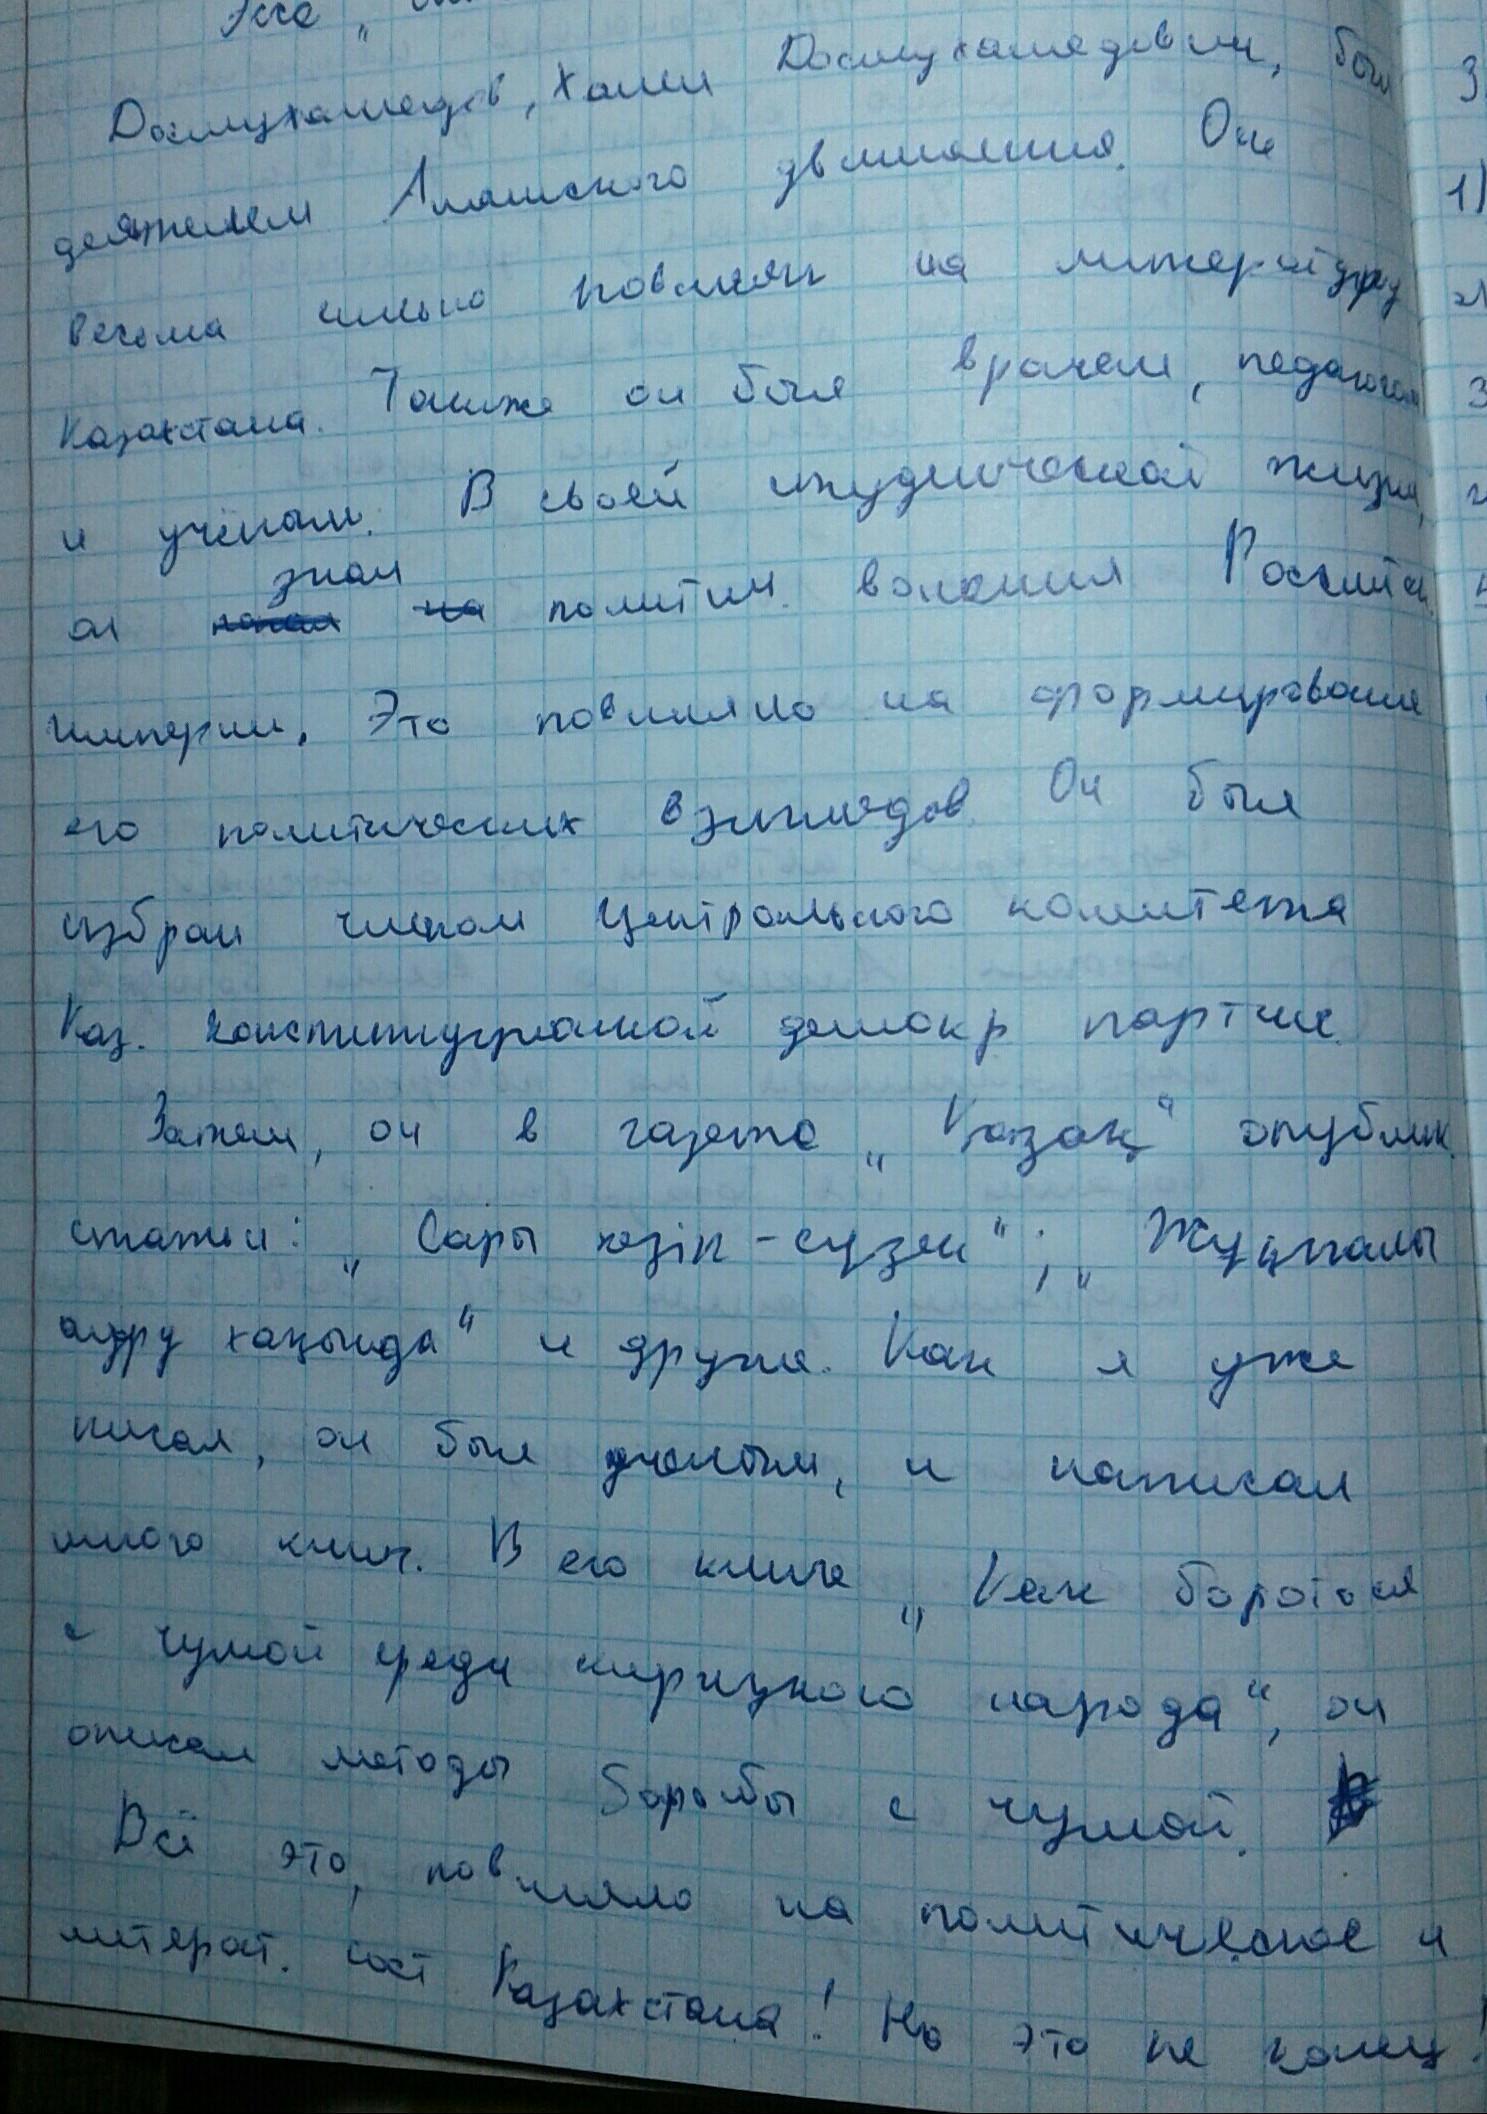 Эссе „
Досмухамедов, Халел Досмухамедович, был
деятелем Алашского движения. Он
весьма сильно повлиял на литературу
Казахстана. Также он был врачем, педагогом
и учёным. В своей студенческой жизни,
он знал политич. волнения Российск.
империи. Это повлияло на формирование
его политических взглядов. Он был
избран членом Центрального комитета
Каз. конституционной демокр партии.
Затем, он в газете „Қазақ“ опублик.
статьи: „Сары кезік-сүзек“; „Жұқпалы
ауру хақында“ и другие. Как я уже
писал, он был учёным, и написал
много книг. В его книге „Как бороться
с чумой среди киргизкого народа“, он
описал методы борьбы с чумой.
Всё это, повлияло на политическое и
литерат. сост Казахстана! Но это не конец!
3
1)
2)
3